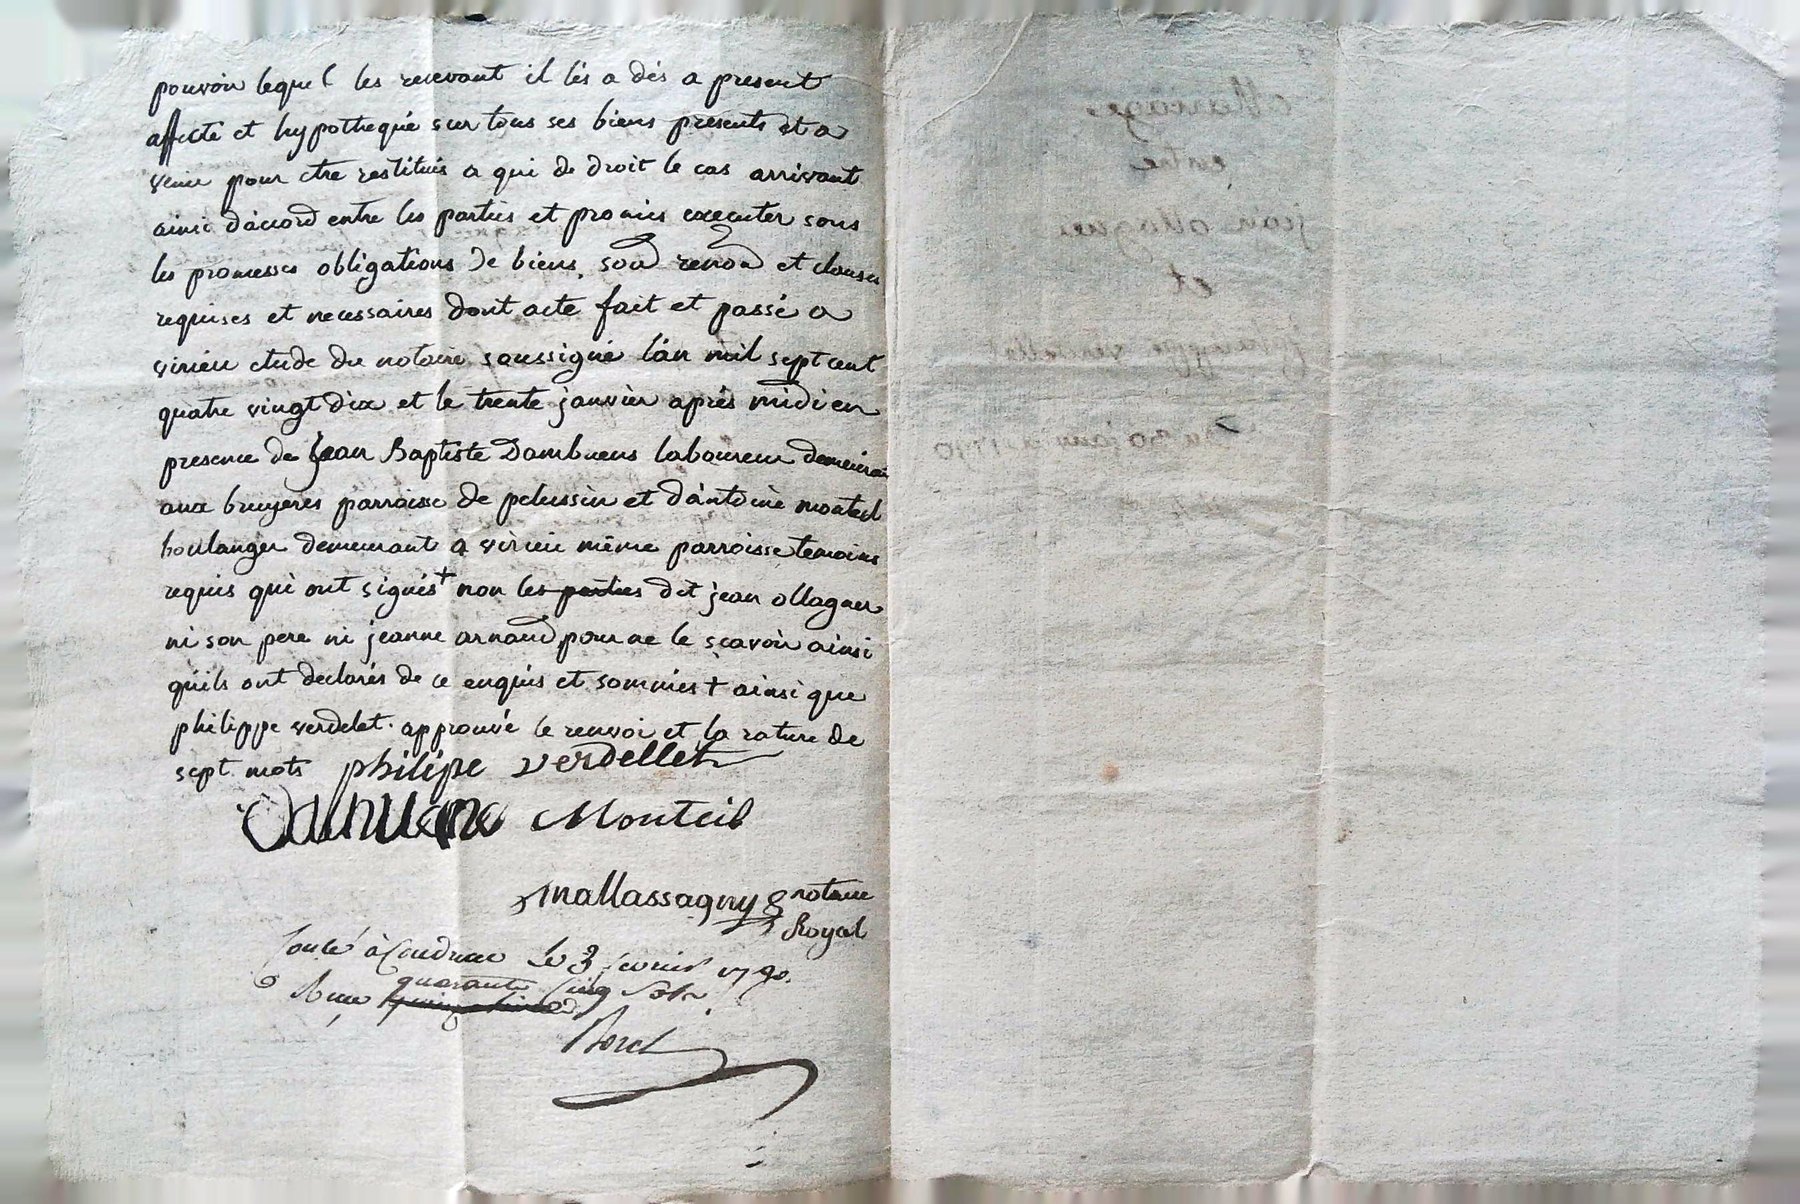 pouvoir lequel les recevant il lés a dés a present
affecté et hypothequé sur tous ses biens presents et a
venir pour etre restitués a qui de droit le cas arrivant
ainsi d'accord entre les parties et promis executer sous
les promesses obligations de biens, soud renond et clauses
requises et necessaires dont acte fait et passé a
virieu etude du notaire soussigné l'an mil sept cent
quatre vingt dix et le trente janvier aprés midi en
presence de jean Baptiste Dambuens laboureur demeurant
aux bruyeres parroisse de pelussin et d'antoine monteil
boulanger demeurant a virieu même parroisse temoins
requis qui ont signés + non les parties dit jean ollagner
ni son pere ni jeanne arnaud pour ne le scavoir ainsi
qu'ils ont declarés de ce enquis et sommés + ainsi que
philippe verdelet. approuvé le renvoi et la rature de
sept mots philipe verdellet
Monteil
Mallassagny notaire
Royal
à Condrieu le 3 fevrier 1790.
quarante cinq sols
Mariage
entre
jean ollagner
et
verdellet
Du 30 janv 1790